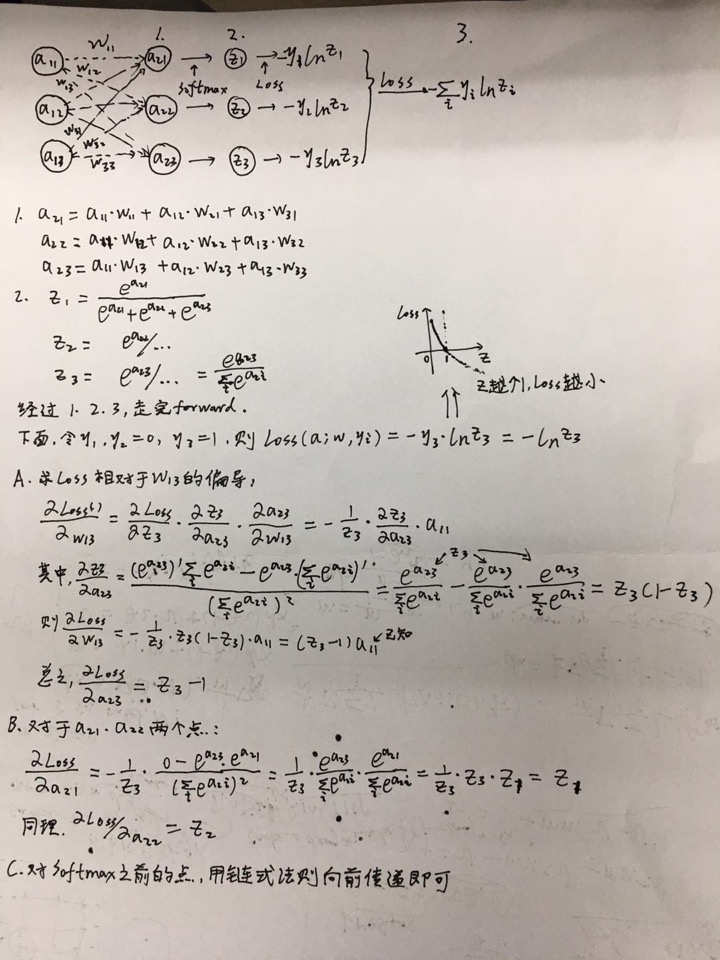 1. 2. 3.
a₁₁ w₁₁ a₂₁ → z₁ → -y₁lnz₁
w₁₂ w₁₃ softmax Loss
a₁₂ a₂₂ → z₂ → -y₂lnz₂ Loss → -∑ᵢ yᵢ ln zᵢ
w₃₁ w₃₂
a₁₃ w₃₃ a₂₃ → z₃ → -y₃lnz₃
1. a₂₁ = a₁₁·w₁₁ + a₁₂·w₂₁ + a₁₃·w₃₁
a₂₂ = a₁₁·w₁₂ + a₁₂·w₂₂ + a₁₃·w₃₂
a₂₃ = a₁₁·w₁₃ + a₁₂·w₂₃ + a₁₃·w₃₃
2. z₁ = e^a₂₁ / (e^a₂₁ + e^a₂₂ + e^a₂₃)
z₂ = e^a₂₂/...
z₃ = e^a₂₃/... = e^a₂₃ / ∑ᵢ e^a₂ᵢ
Loss 0 1 z
z越个1, Loss越小
经过 1. 2. 3, 走完forward.
下面, 令y₁, y₂=0, y₃=1, 则 Loss(a; w, yᵢ) = -y₃·lnz₃ = -lnz₃
A. 求Loss相对于W₁₃的偏导,
∂Loss()/∂w₁₃ = ∂Loss/∂z₃ · ∂z₃/∂a₂₃ · ∂a₂₃/∂w₁₃ = -1/z₃ · ∂z₃/∂a₂₃ · a₁₁
其中, ∂z₃/∂a₂₃ = ((e^a₂₃)'∑ᵢe^a₂ᵢ - e^a₂₃·(∑ᵢe^a₂ᵢ)') / (∑ᵢe^a₂ᵢ)² = e^a₂₃/∑ᵢe^a₂ᵢ - e^a₂₃/∑ᵢe^a₂ᵢ · e^a₂₃/∑ᵢe^a₂ᵢ = z₃(1-z₃)
z₃
则 ∂Loss/∂w₁₃ = -1/z₃ · z₃(1-z₃)·a₁₁ = (z₃-1)a₁₁ 已知
总之, ∂Loss/∂a₂₃ = z₃-1
B. 对于a₂₁, a₂₂ 两个点:
∂Loss/∂a₂₁ = -1/z₃ · (0 - e^a₂₃·e^a₂₁)/(∑ᵢe^a₂ᵢ)² = 1/z₃ · e^a₂₃/∑ᵢe^a₂ᵢ · e^a₂₁/∑ᵢe^a₂ᵢ = 1/z₃ · z₃ · z₁ = z₁
同理, ∂Loss/∂a₂₂ = z₂
C. 对Softmax之前的点, 用链式法则向前传递即可